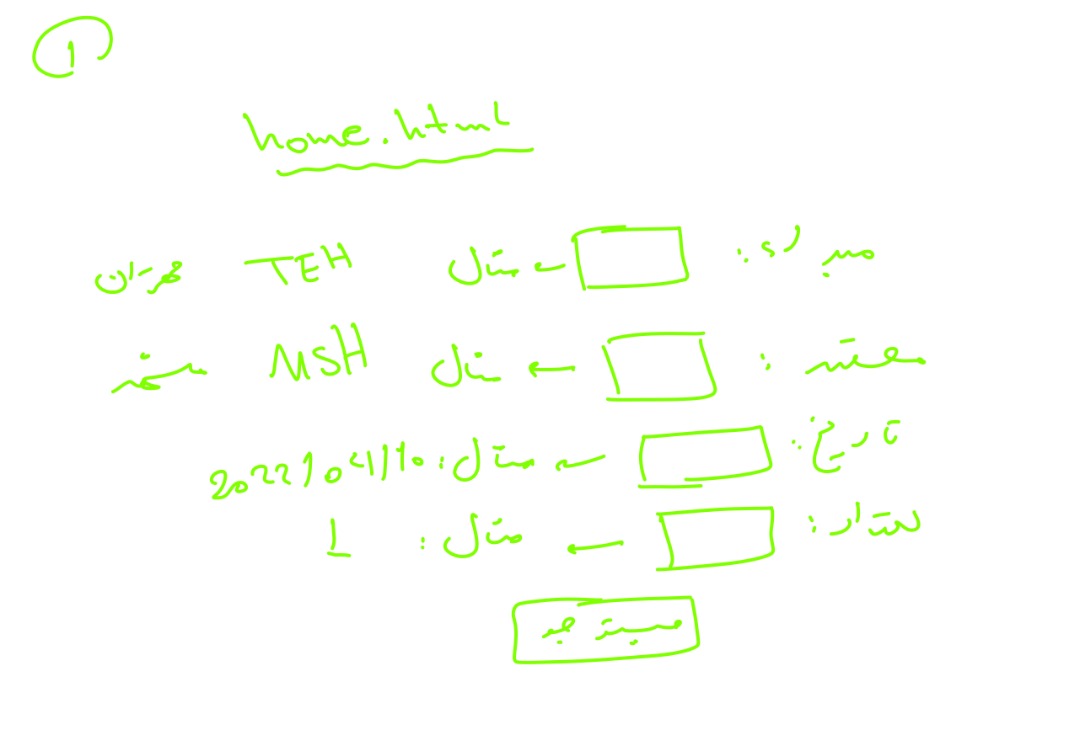 1
home.html
مبدا: مثال TEH تهران
مقصد: مثال MSH مشهد
تاریخ: مثال: 2022/04/10
تعداد: مثال: 1
جستجو